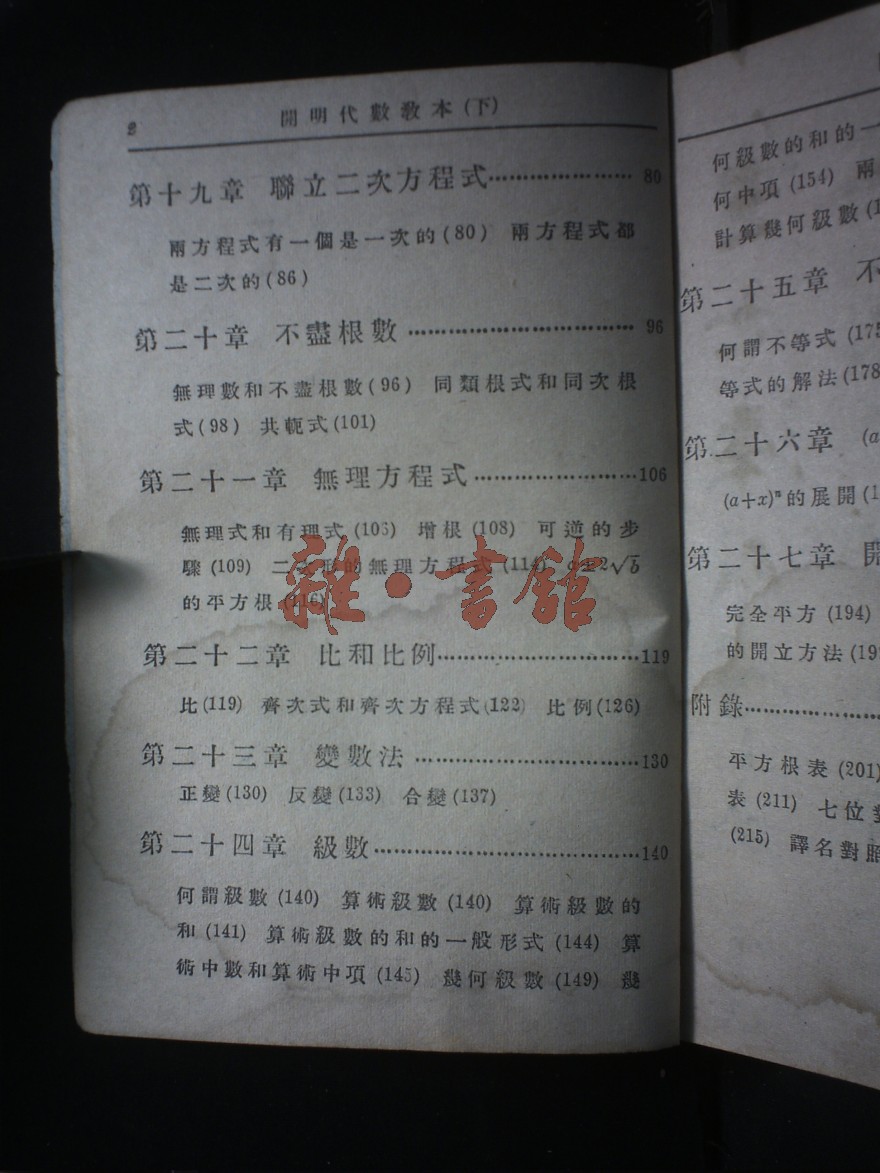 2
開明代數教本(下)
第十九章 聯立二次方程式………………… 80
兩方程式有一個是一次的(80) 兩方程式都
是二次的(86)
第二十章 不盡根數………………………… 96
無理數和不盡根數(96) 同類根式和同次根
式(98) 共軛式(101)
第二十一章 無理方程式…………………106
無理式和有理式(106) 增根(108) 可逆的步
驟(109) 二次形的無理方程式(114) a±2√b
的平方根(116)
第二十二章 比和比例……………………119
比(119) 齊次式和齊次方程式(122) 比例(126)
第二十三章 變數法………………………130
正變(130) 反變(133) 合變(137)
第二十四章 級數…………………………140
何謂級數(140) 算術級數(140) 算術級數的
和(141) 算術級數的和的一般形式(144) 算
術中數和算術中項(145) 幾何級數(149) 幾
雜·書館
何級數的和的一
何中項(154) 兩
計算幾何級數(1
第二十五章 不
何謂不等式(175
等式的解法(178
第二十六章 (a
(a+x)ⁿ的展開(1
第二十七章 開
完全平方(194)
的開立方法(19
附錄…………………
平方根表(201)
表(211) 七位對
(215) 譯名對照